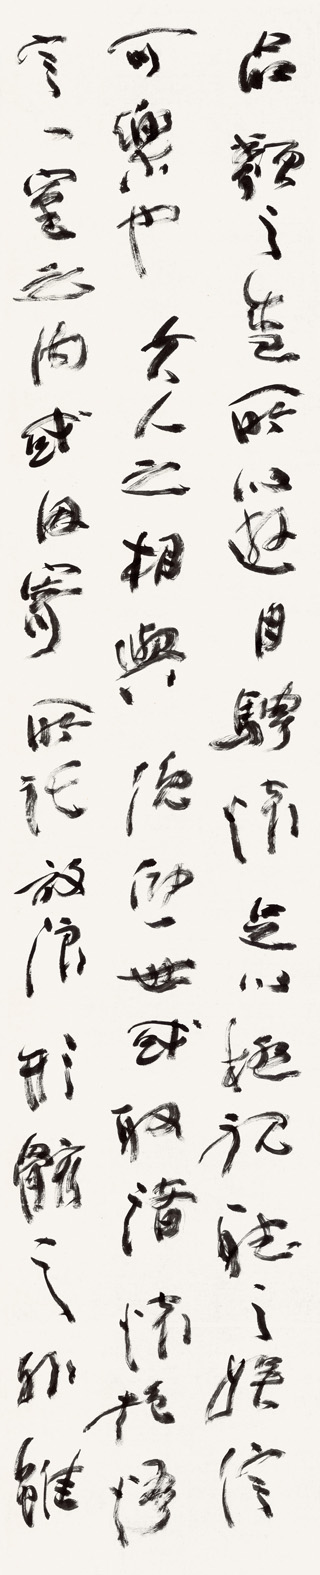 品類之盛所以遊目騁懷足以極視聽之娛信
可樂也夫人之相與俯仰一世或取諸懷抱悟
言一室之內或因寄所託放浪形骸之外雖